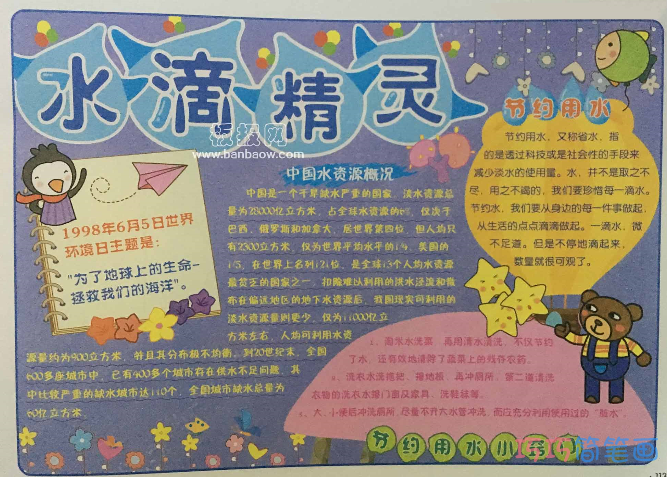 水滴精灵
板报网
www.banbaow.com
1998年6月5日世界
环境日主题是：
"为了地球上的生命-
拯救我们的海洋"。
中国水资源概况
中国是一个干旱缺水严重的国家，淡水资源总
量为28000亿立方米，占全球水资源的6%，仅次于
巴西、俄罗斯和加拿大，居世界第四位，但人均只
有2300立方米，仅为世界平均水平的1/4、美国的
1/5，在世界上名列121位，是全球13个人均水资源
最贫乏的国家之一。扣除难以利用的洪水泾流和散
布在偏远地区的地下水资源后，我国现实可利用的
淡水资源量则更少，仅为11000亿立
方米左右，人均可利用水资
源量约为900立方米，并且其分布极不均衡。到20世纪末，全国
600多座城市中，已有400多个城市存在供水不足问题，其
中比较严重的缺水城市达110个，全国城市缺水总量为
60亿立方米。
节约用水
节约用水，又称省水，指
的是透过科技或是社会性的手段来
减少淡水的使用量。水，并不是取之不
尽，用之不竭的，我们要珍惜每一滴水。
节约水，我们要从身边的每一件事做起，
从生活的点点滴滴做起。一滴水，微
不足道。但是不停地滴起来，
数量就很可观了。
1、用米水洗菜，再用清水清洗，不仅节约
了水，还有效地清除了蔬菜上的残存农药。
2、洗衣水洗拖把、拖地板、再冲厕所。第二道清洗
衣物的洗衣水擦门窗及家具、洗鞋袜等。
3、大、小便后冲洗厕所，尽量不开大水管冲洗，而应充分利用使用过的"脏水"。
节约用水小窍
简笔画
113